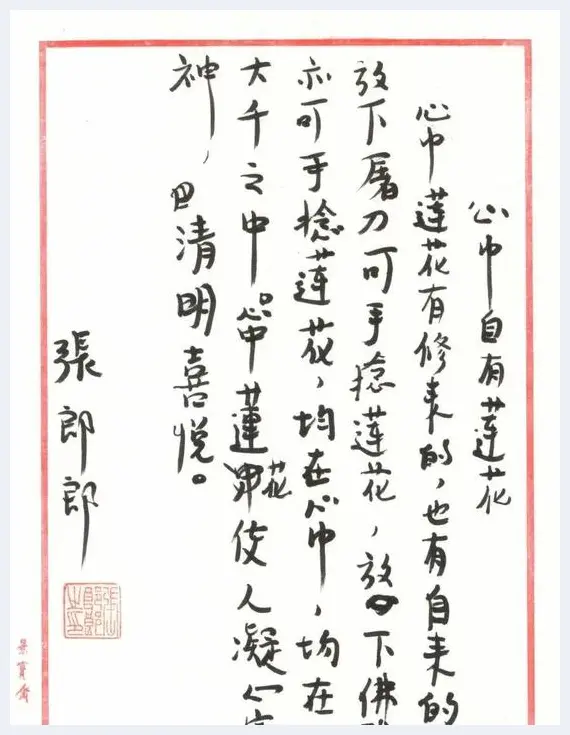 心中自有蓮花
心中蓮花有修来的，也有自来的
放下屠刀可手捻蓮花，放下佛
亦可手捻蓮花，均在心中，均在
大千之中。心中蓮花使人凝心
神，清明喜悦。
張郎郎
榮寶齋